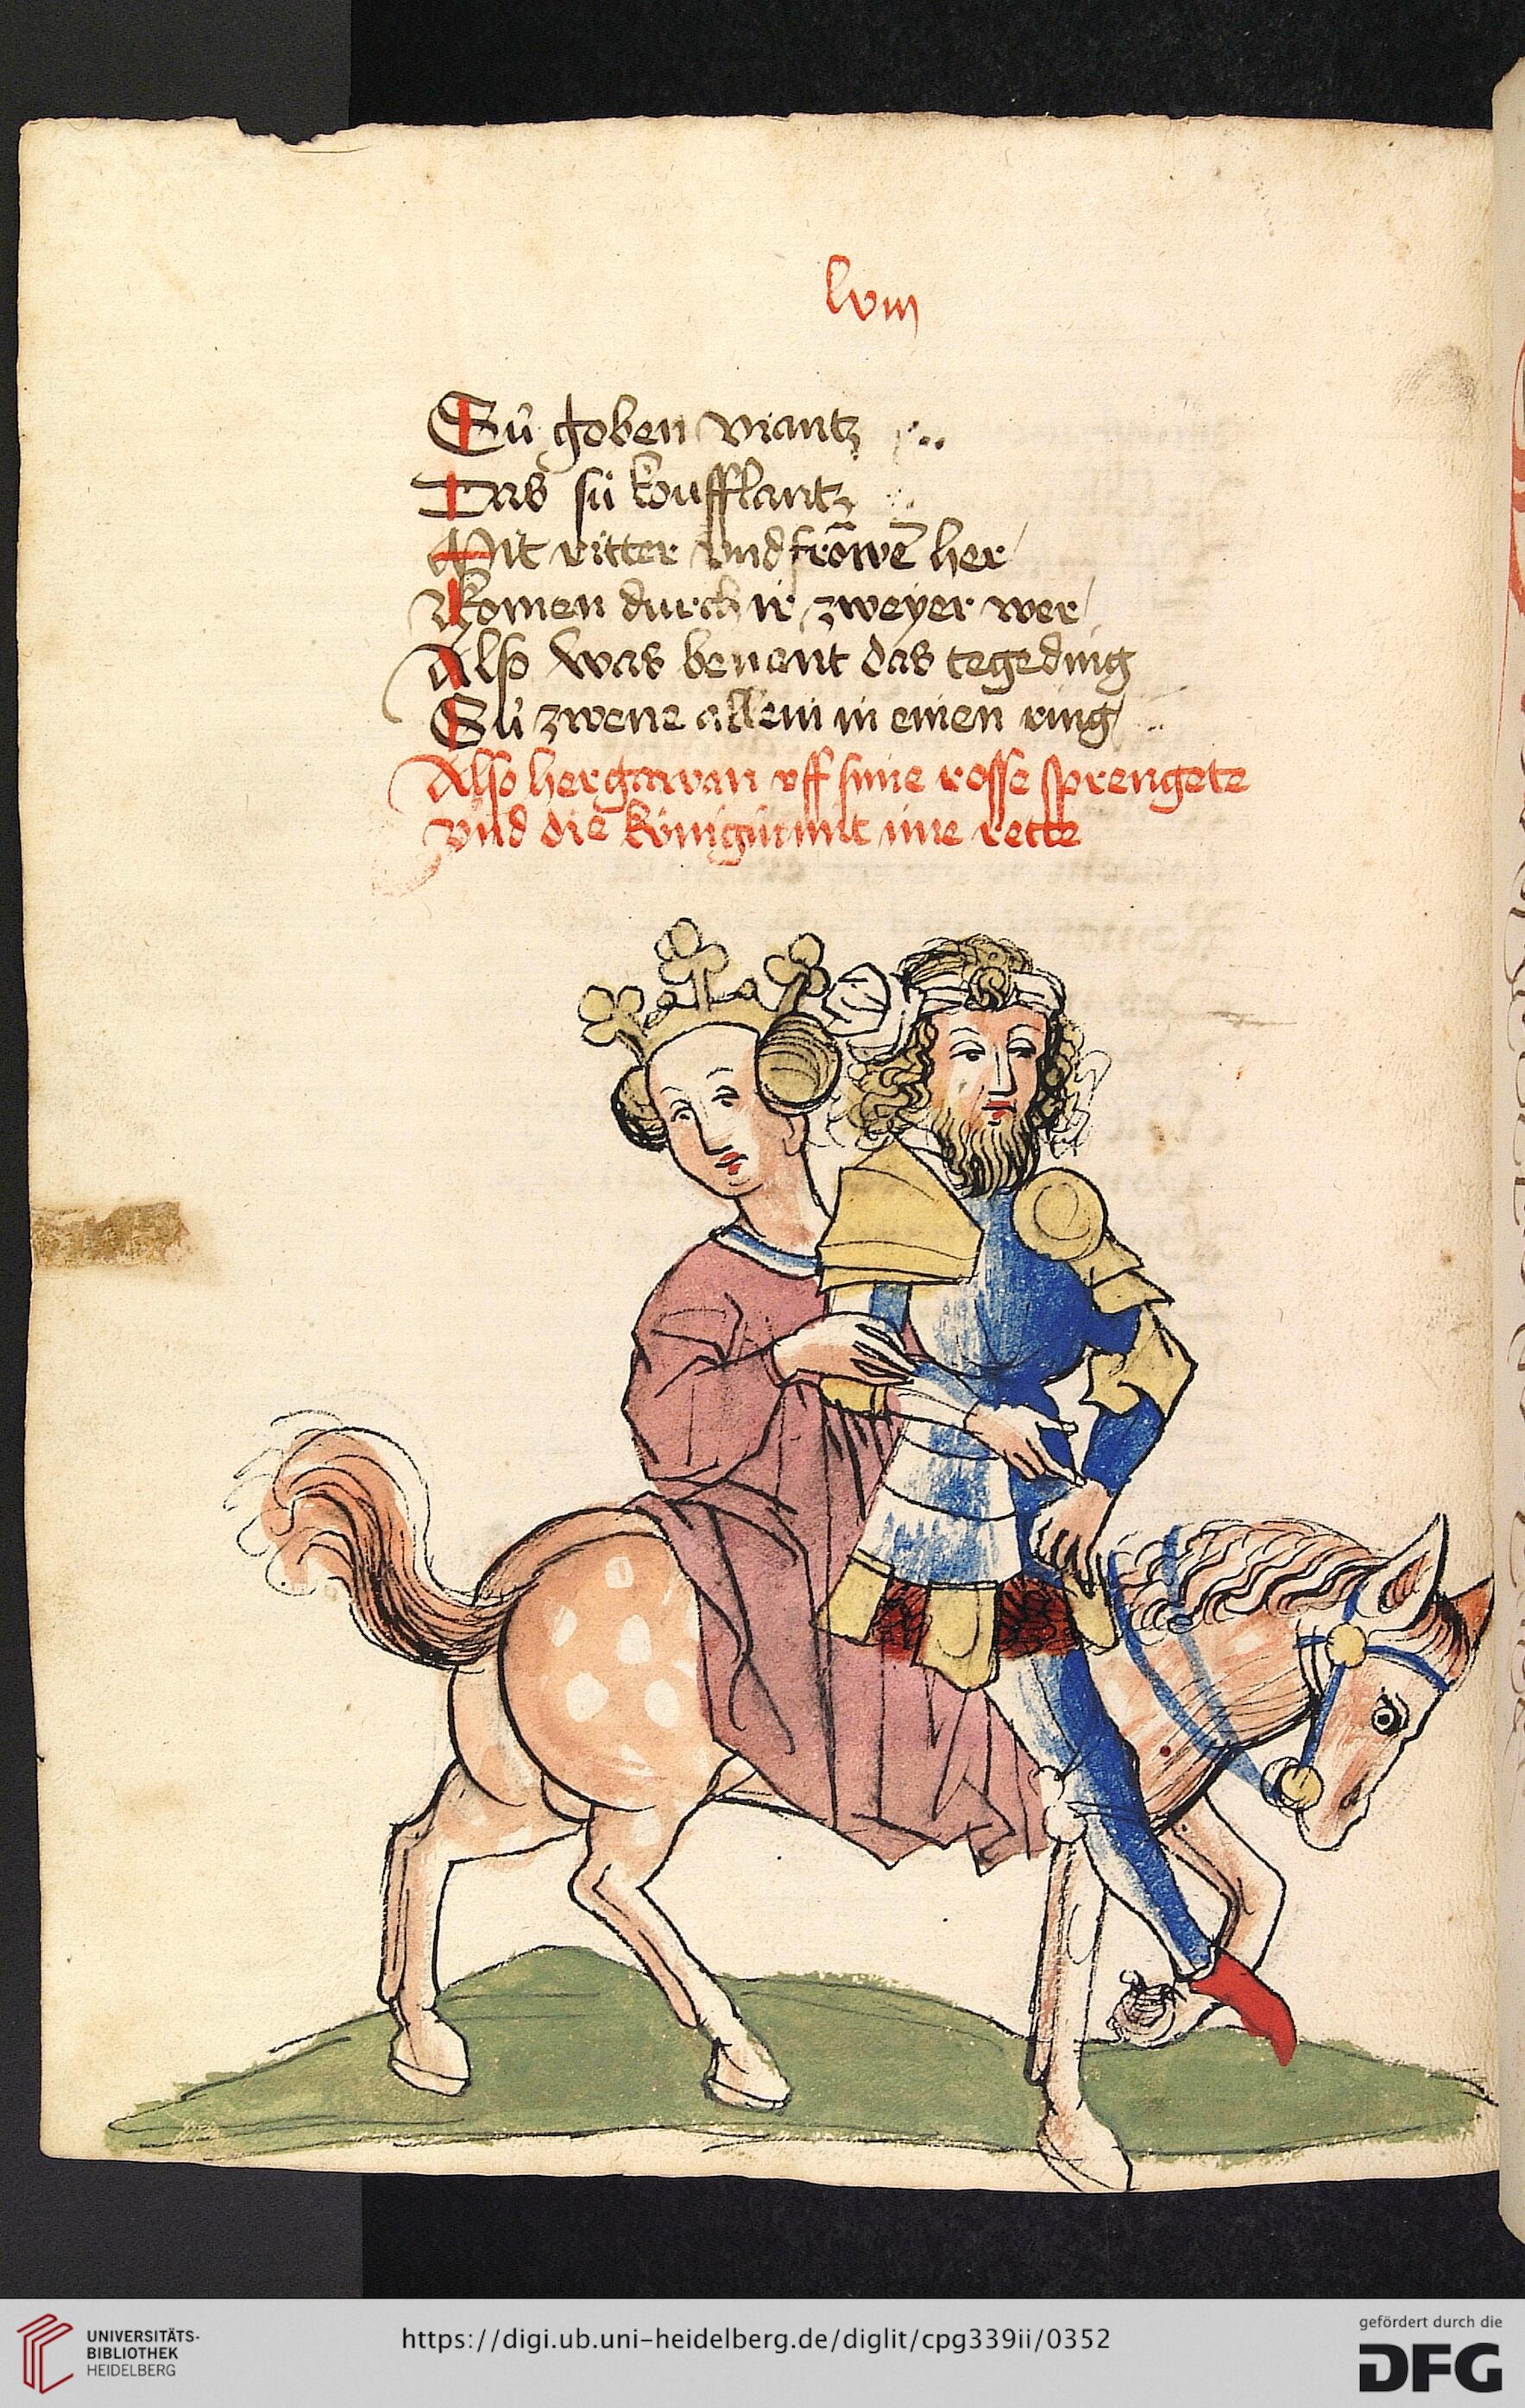 lviij
Sü goben viantz
Das sü koufflantz
Mit ritter vnd frōwē her
Komen durch ir zweyer wer
Also was benant das tegeding
Sü zwene allein in einen ring
Also her gawan vff sime rosse sprengete
vnd die künigin mit ime rette
UNIVERSITÄTS-
BIBLIOTHEK
HEIDELBERG
https://digi.ub.uni-heidelberg.de/diglit/cpg339ii/0352
gefördert durch die
DFG